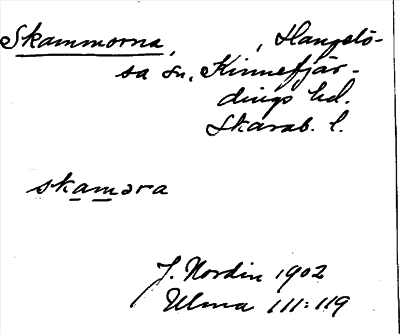 Skammorna, , Hangelö-
sa sn, Kinnefjär-
dings hd.
Skarab. l.
skaməra
J. Nordin 1902
Ulma 111:119